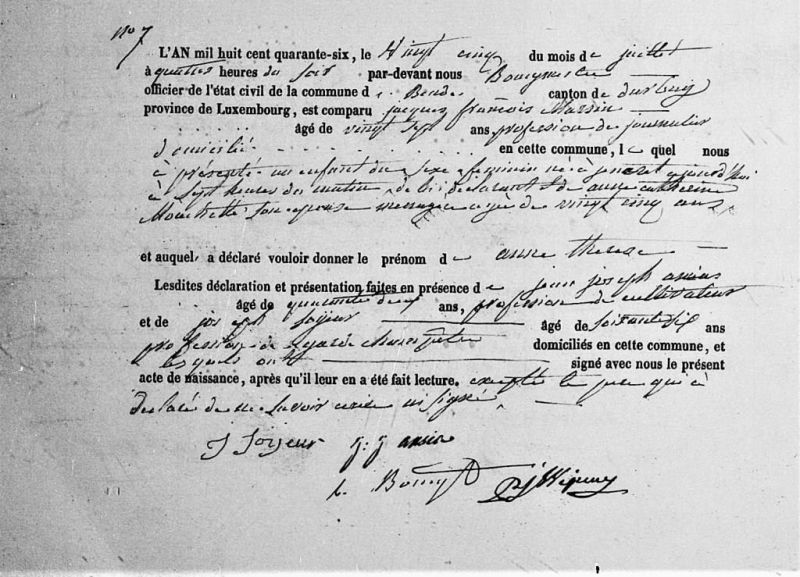 no 7
L'AN mil huit cent quarante-six, le Vingt cinq du mois de juillet
à quattre heures du soir par-devant nous Bourgmestre
officier de l'état civil de la commune de Bende canton de durbuy
province de Luxembourg, est comparu jacques françois
âgé de vingt sept ans, profession de journalier
domicilié en cette commune, le quel nous
a présenté un enfant du sexe feminin né à aujourd'hui
à sept heures du matin de lui déclarant & de anne catherine
son epouse menagère agée de vingt cinq ans
et auquel a déclaré vouloir donner le prénom de anne therese
Lesdites déclaration et présentation faites en présence de jean joseph
âgé de quarante deux ans, profession de cultivateur
et de joseph soijeur âgé de soixante six ans
profession de garde champetre domiciliés en cette commune, et
lesquels ont signé avec nous le présent
acte de naissance, après qu'il leur en a été fait lecture. excepté le pere qui a
declaré de ne savoir ecrire ni signé
J Soijeur j. j
le Bourgt